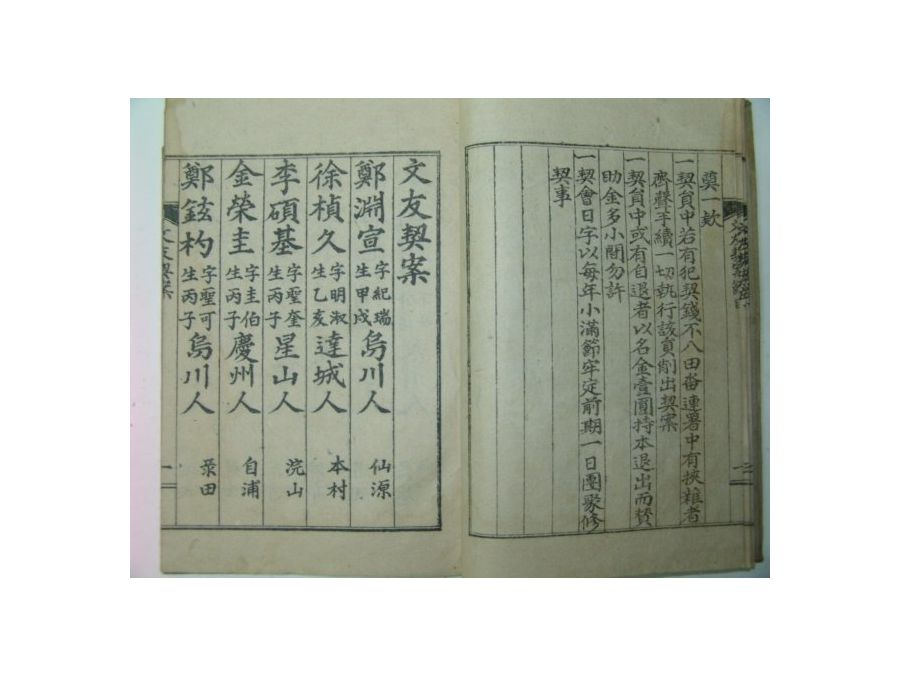 奠一欸
一契員中若有犯契錢不入田畓連署中有挾雜者
齊聲手續一切執行該員削出契案
一契員中或有自退者以名金壹圓持本退出而贊
助金多小間勿許
一契會日字以每年小滿節牢定前期一日團聚修
契事
文友契案
鄭淵宣 字紀瑞 生甲戌 烏川人 仙源
徐楨久 字明淑 生乙亥 達城人 本村
李碩基 字聖奎 生丙子 星山人 浣山
金榮圭 字圭伯 生丙子 慶州人 自浦
鄭鉉杓 字聖可 生丙子 烏川人 彔田
文友契案
一
二